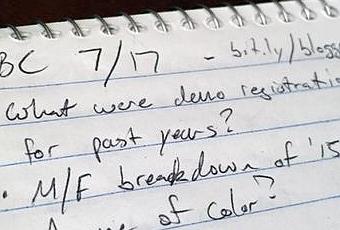 BC 7/17 - bit.ly/blogg
What were demo registratio
for past years?
• M/F breakdown of '15
of color?